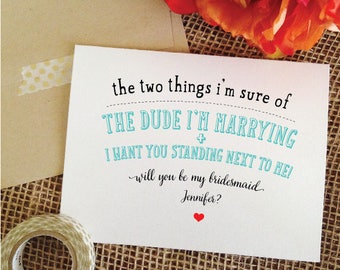 the two things i'm sure of
THE DUDE I'M MARRYING
+
I WANT YOU STANDING NEXT TO ME!
will you be my bridesmaid
Jennifer?